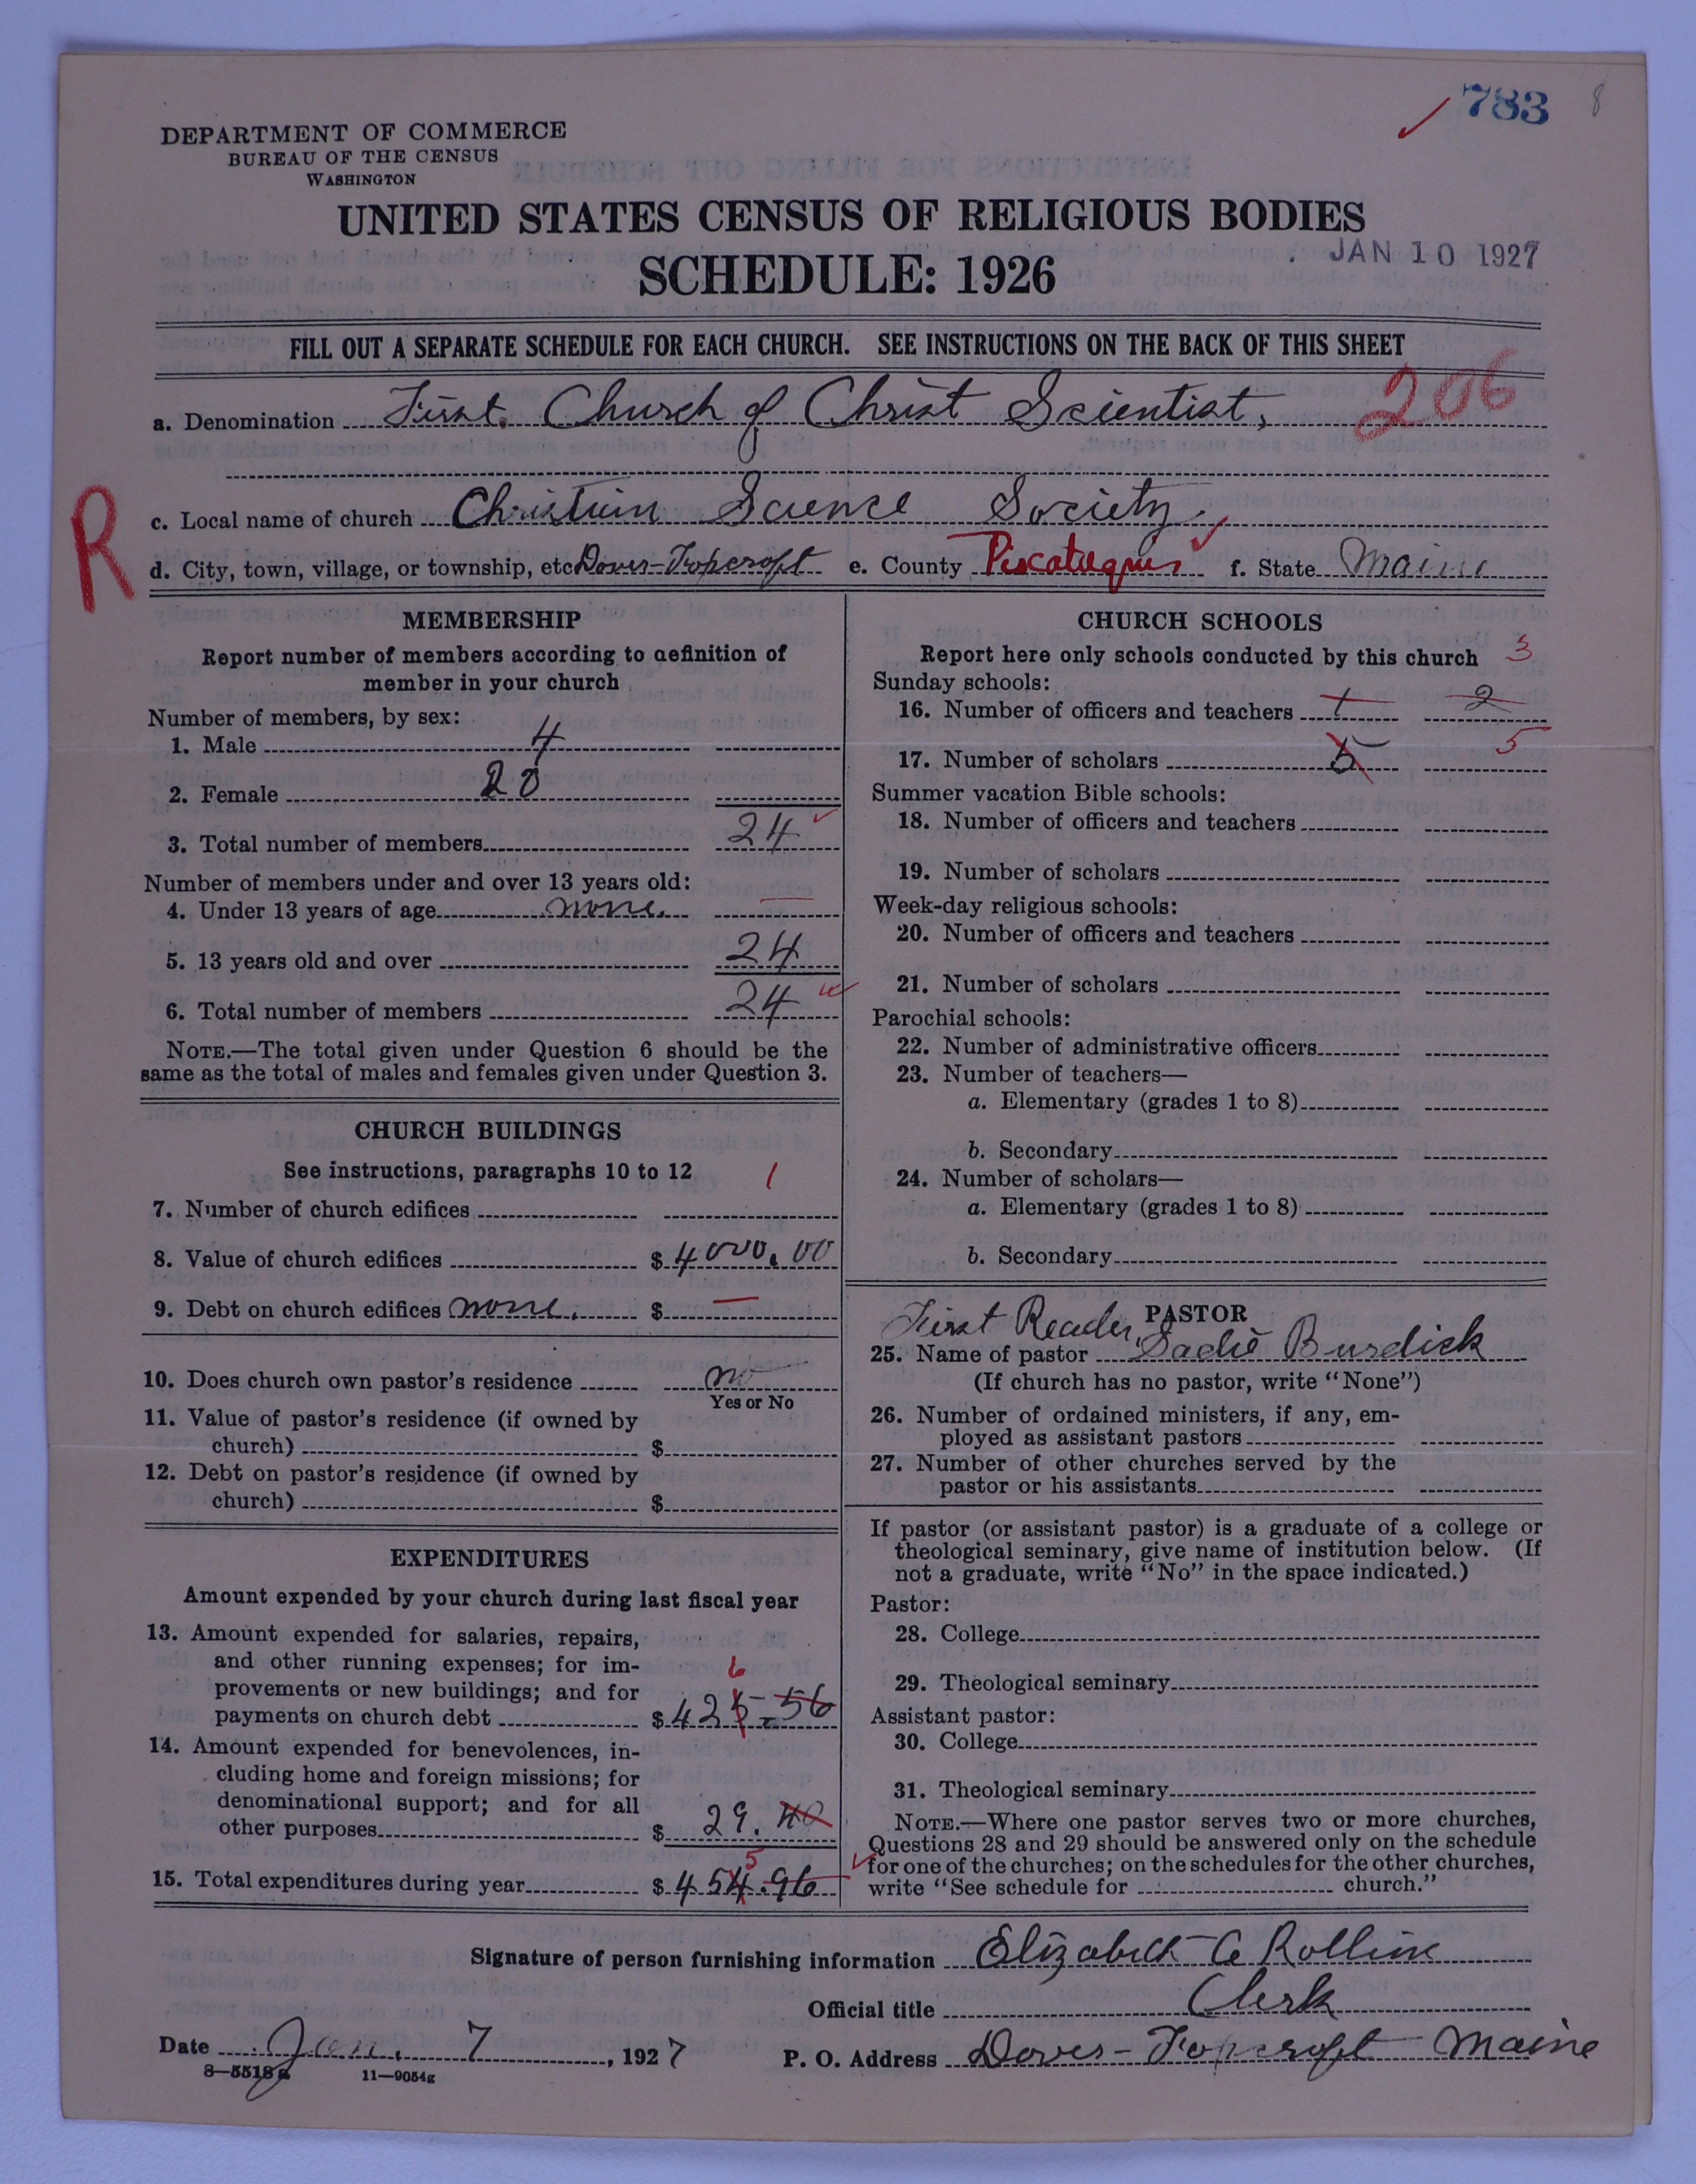 783
8
DEPARTMENT OF COMMERCE
BUREAU OF THE CENSUS
WASHINGTON
UNITED STATES CENSUS OF RELIGIOUS BODIES
JAN 10 1927
SCHEDULE: 1926
FILL OUT A SEPARATE SCHEDULE FOR EACH CHURCH. SEE INSTRUCTIONS ON THE BACK OF THIS SHEET
206
a. Denomination First. Church of Christ Scientist,
R
c. Local name of church Christian Science Society.
d. City, town, village, or township, etc Dover-Foxcroft e. County Piscataquis f. State Maine
MEMBERSHIP
Report number of members according to definition of
member in your church
Number of members, by sex:
1. Male 4
2. Female 20
3. Total number of members 24
Number of members under and over 13 years old:
4. Under 13 years of age none.
5. 13 years old and over 24
6. Total number of members 24
NOTE.—The total given under Question 6 should be the
same as the total of males and females given under Question 3.
CHURCH BUILDINGS
See instructions, paragraphs 10 to 12
1
7. Number of church edifices
8. Value of church edifices $ 4000.00
9. Debt on church edifices none. $ —
10. Does church own pastor's residence no
Yes or No
11. Value of pastor's residence (if owned by
church) $
12. Debt on pastor's residence (if owned by
church) $
EXPENDITURES
Amount expended by your church during last fiscal year
13. Amount expended for salaries, repairs,
and other running expenses; for im-
6
provements or new buildings; and for
payments on church debt $ 425-56
14. Amount expended for benevolences, in-
cluding home and foreign missions; for
denominational support; and for all
other purposes $ 29.40
5
15. Total expenditures during year $ 454.96
CHURCH SCHOOLS
Report here only schools conducted by this church
3
Sunday schools:
16. Number of officers and teachers 1 2
5
17. Number of scholars 5
Summer vacation Bible schools:
18. Number of officers and teachers
19. Number of scholars
Week-day religious schools:
20. Number of officers and teachers
21. Number of scholars
Parochial schools:
22. Number of administrative officers
23. Number of teachers—
a. Elementary (grades 1 to 8)
b. Secondary
24. Number of scholars—
a. Elementary (grades 1 to 8)
b. Secondary
PASTOR
First Reader,
25. Name of pastor Sadie Burdick
(If church has no pastor, write "None")
26. Number of ordained ministers, if any, em-
ployed as assistant pastors
27. Number of other churches served by the
pastor or his assistants
If pastor (or assistant pastor) is a graduate of a college or
theological seminary, give name of institution below. (If
not a graduate, write "No" in the space indicated.)
Pastor:
28. College
29. Theological seminary
Assistant pastor:
30. College
31. Theological seminary
NOTE.—Where one pastor serves two or more churches,
Questions 28 and 29 should be answered only on the schedule
for one of the churches; on the schedules for the other churches,
write "See schedule for church."
Signature of person furnishing information Elizabeth C Rollins
Official title Clerk
Date Jan. 7, 1927 P. O. Address Dover-Foxcroft Maine
8—5518 a 11—9054g